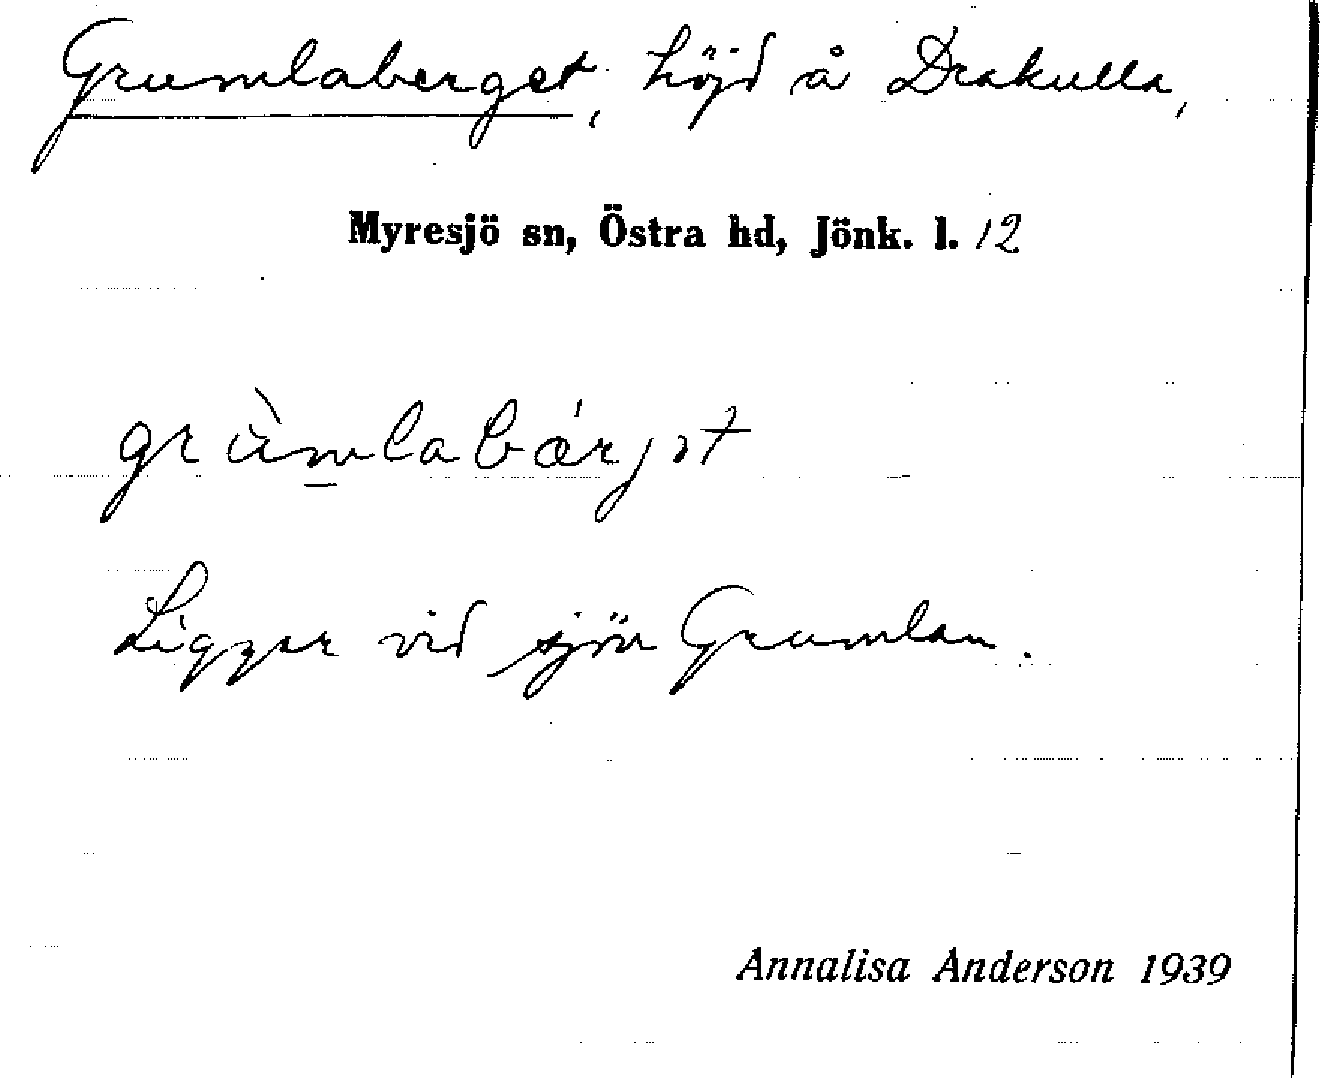 Grumlaberget, höjd å Drakulla,
Myresjö sn, Östra hd, Jönk. l. 12
Ligger vid sjön Grumlan.
Annalisa Anderson 1939